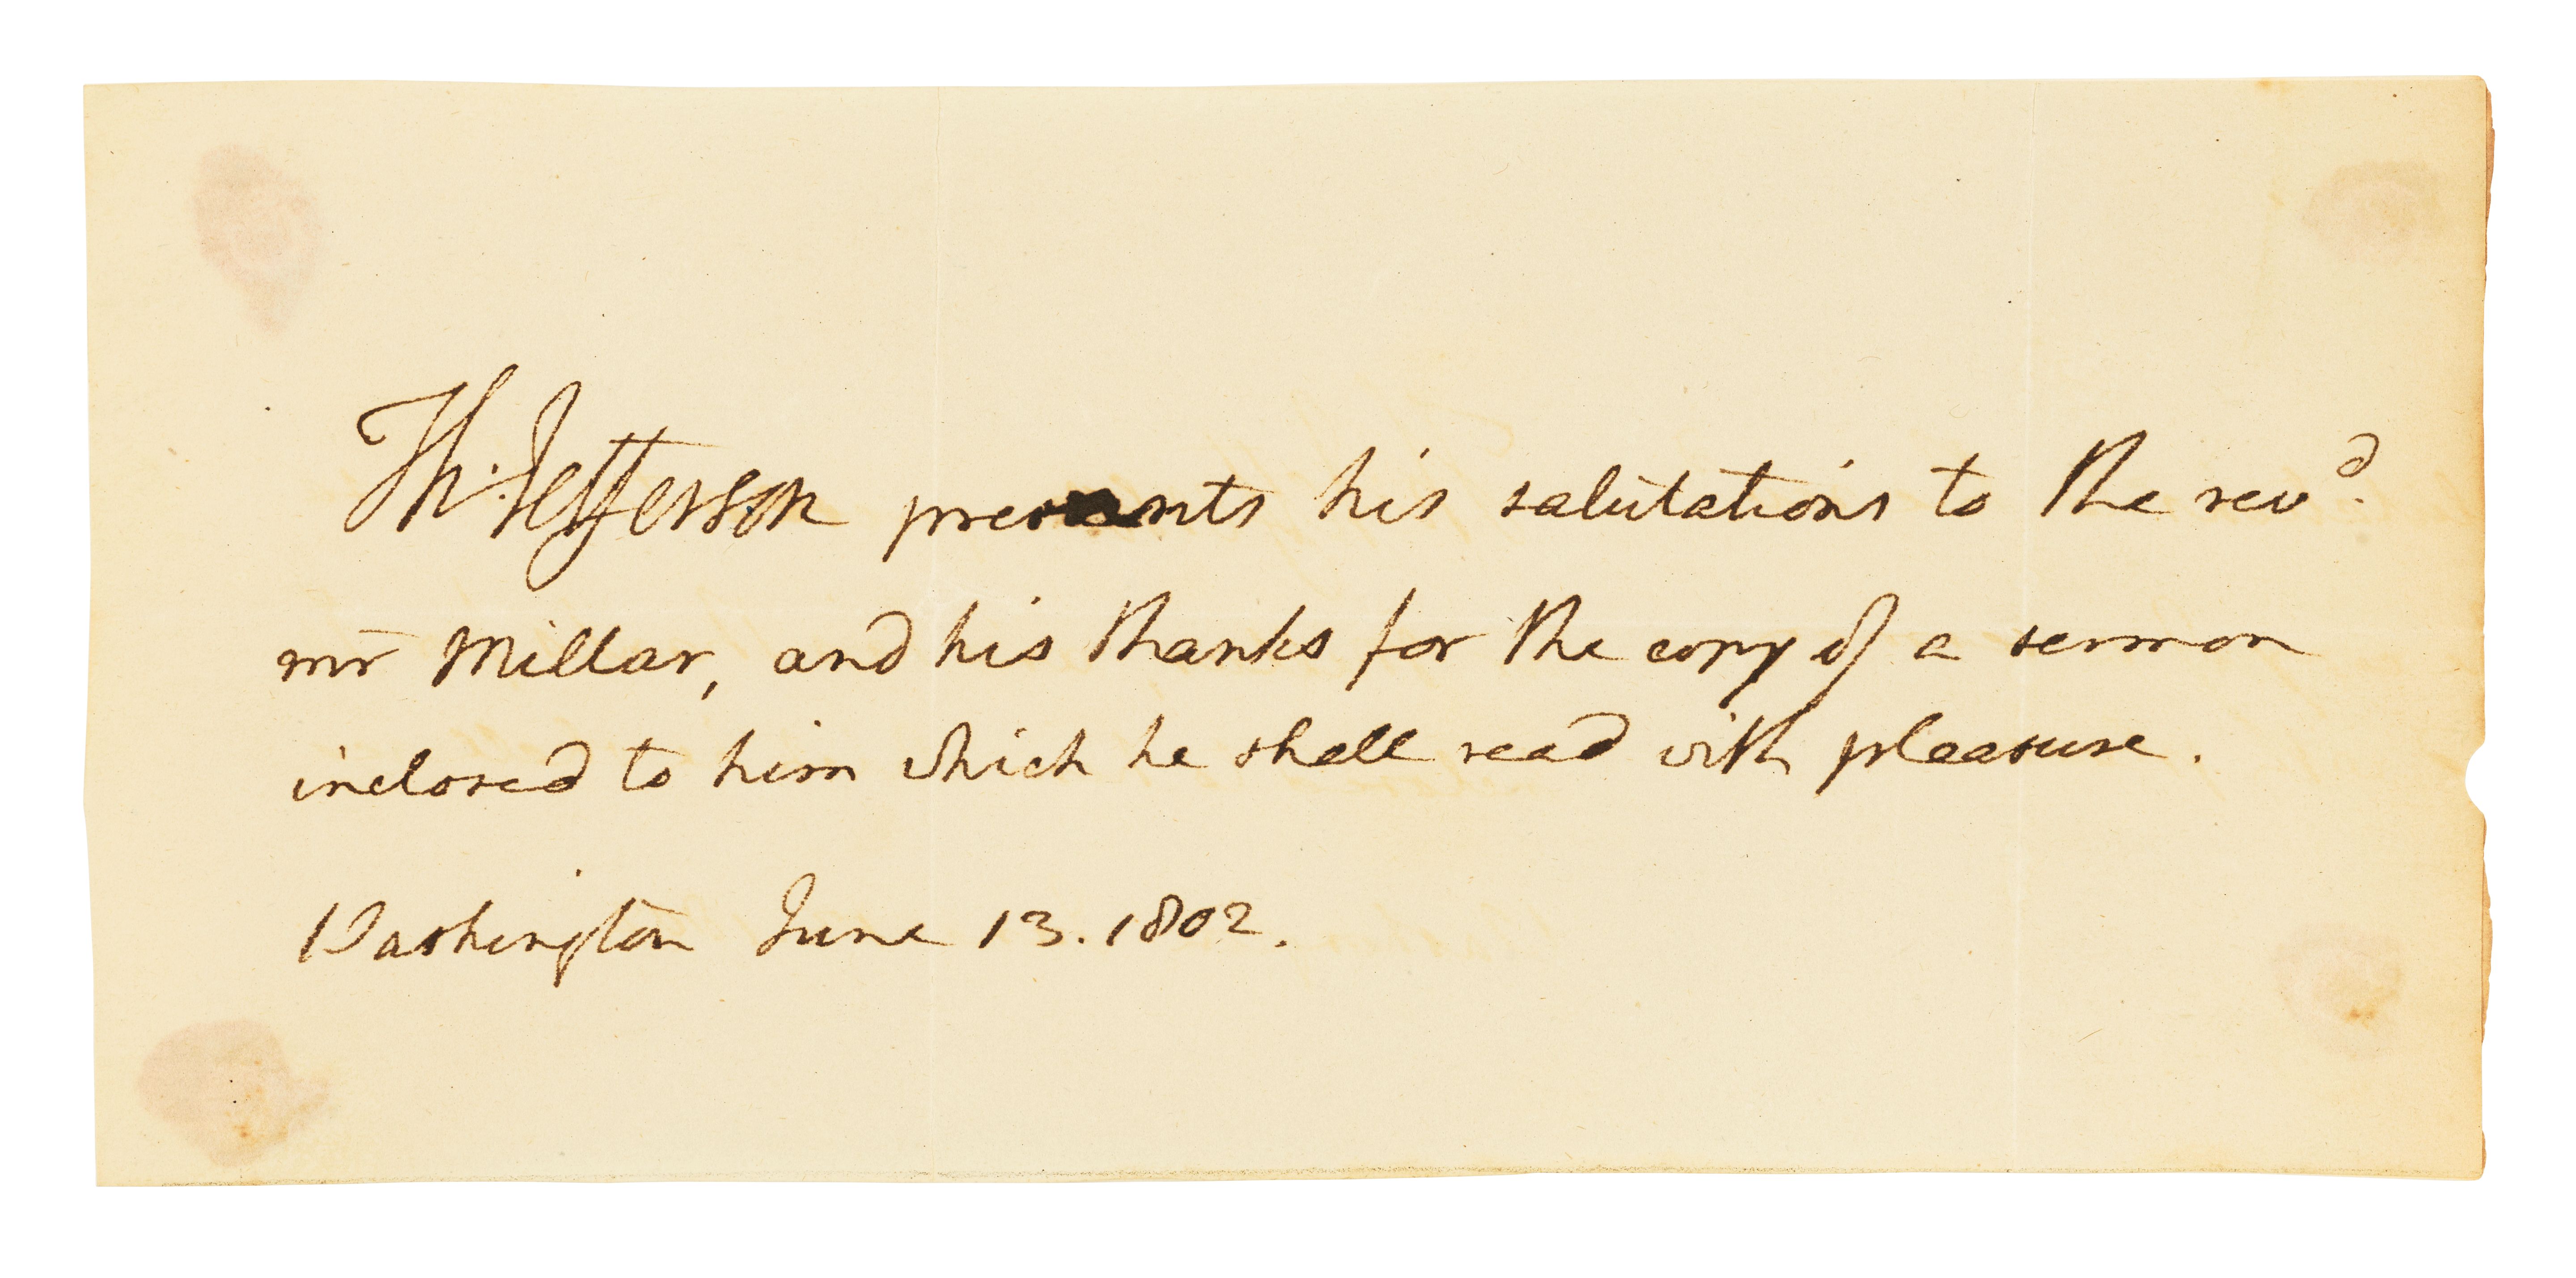 Th: Jefferson presents his salutations to the revd.
mr Millar, and his thanks for the copy of a sermon
inclosed to him which he shall read with pleasure.
Washington June 13. 1802.